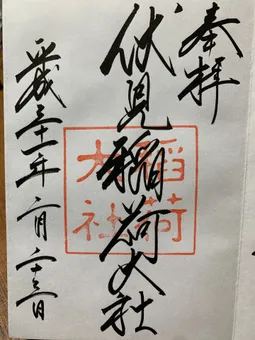 奉拝
伏見稲荷大社
稲荷
大社
平成三十一年二月二十三日